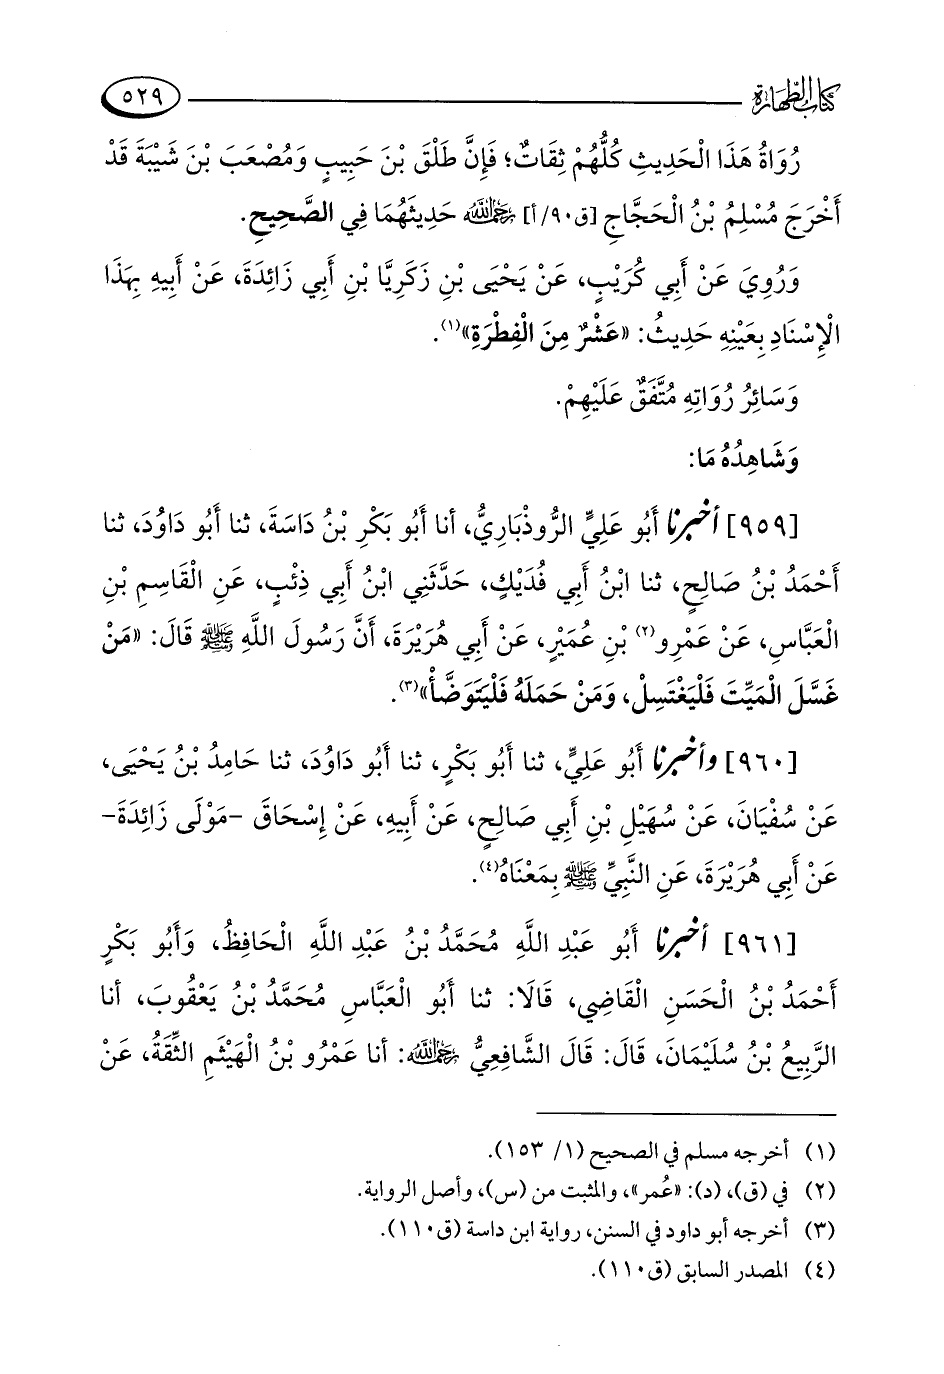 كتاب الطهارة ٥٢٩
رُوَاةُ هَذَا الْحَدِيثِ كُلُّهُمْ ثِقَاتٌ؛ فَإِنَّ طَلْقَ بْنَ حَبِيبٍ وَمُصْعَبَ بْنَ شَيْبَةَ قَدْ
أَخْرَجَ مُسْلِمُ بْنُ الْحَجَّاجِ [ق٩٠/أ] رَحِمَهُ اللَّهُ حَدِيثَهُمَا فِي الصَّحِيحِ.
وَرُوِيَ عَنْ أَبِي كُرَيْبٍ، عَنْ يَحْيَى بْنِ زَكَرِيَّا بْنِ أَبِي زَائِدَةَ، عَنْ أَبِيهِ بِهَذَا
الْإِسْنَادِ بِعَيْنِهِ حَدِيثُ: «عَشْرٌ مِنَ الْفِطْرَةِ»(١).
وَسَائِرُ رُوَاتِهِ مُتَّفَقٌ عَلَيْهِمْ.
وَشَاهِدُهُ مَا:
[٩٥٩] أخبرنا أَبُو عَلِيٍّ الرُّوذْبَارِيُّ، أنا أَبُو بَكْرِ بْنُ دَاسَةَ، ثنا أَبُو دَاوُدَ، ثنا
أَحْمَدُ بْنُ صَالِحٍ، ثنا ابْنُ أَبِي فُدَيْكٍ، حَدَّثَنِي ابْنُ أَبِي ذِئْبٍ، عَنِ الْقَاسِمِ بْنِ
الْعَبَّاسِ، عَنْ عَمْرِو(٢) بْنِ عُمَيْرٍ، عَنْ أَبِي هُرَيْرَةَ، أَنَّ رَسُولَ اللَّهِ ﷺ قَالَ: «مَنْ
غَسَّلَ الْمَيِّتَ فَلْيَغْتَسِلْ، وَمَنْ حَمَلَهُ فَلْيَتَوَضَّأْ»(٣).
[٩٦٠] وأخبرنا أَبُو عَلِيٍّ، ثنا أَبُو بَكْرٍ، ثنا أَبُو دَاوُدَ، ثنا حَامِدُ بْنُ يَحْيَى،
عَنْ سُفْيَانَ، عَنْ سُهَيْلِ بْنِ أَبِي صَالِحٍ، عَنْ أَبِيهِ، عَنْ إِسْحَاقَ -مَوْلَى زَائِدَةَ-
عَنْ أَبِي هُرَيْرَةَ، عَنِ النَّبِيِّ ﷺ بِمَعْنَاهُ(٤).
[٩٦١] أخبرنا أَبُو عَبْدِ اللَّهِ مُحَمَّدُ بْنُ عَبْدِ اللَّهِ الْحَافِظُ، وَأَبُو بَكْرٍ
أَحْمَدُ بْنُ الْحَسَنِ الْقَاضِي، قَالَا: ثنا أَبُو الْعَبَّاسِ مُحَمَّدُ بْنُ يَعْقُوبَ، أنا
الرَّبِيعُ بْنُ سُلَيْمَانَ، قَالَ: قَالَ الشَّافِعِيُّ رَحِمَهُ اللَّهُ: أنا عَمْرُو بْنُ الْهَيْثَمِ الثِّقَةُ، عَنْ
(١) أخرجه مسلم في الصحيح (١/ ١٥٣).
(٢) في (ق)، (د): «عُمر»، والمثبت من (س)، وأصل الرواية.
(٣) أخرجه أبو داود في السنن، رواية ابن داسة (ق١١٠).
(٤) المصدر السابق (ق١١٠).